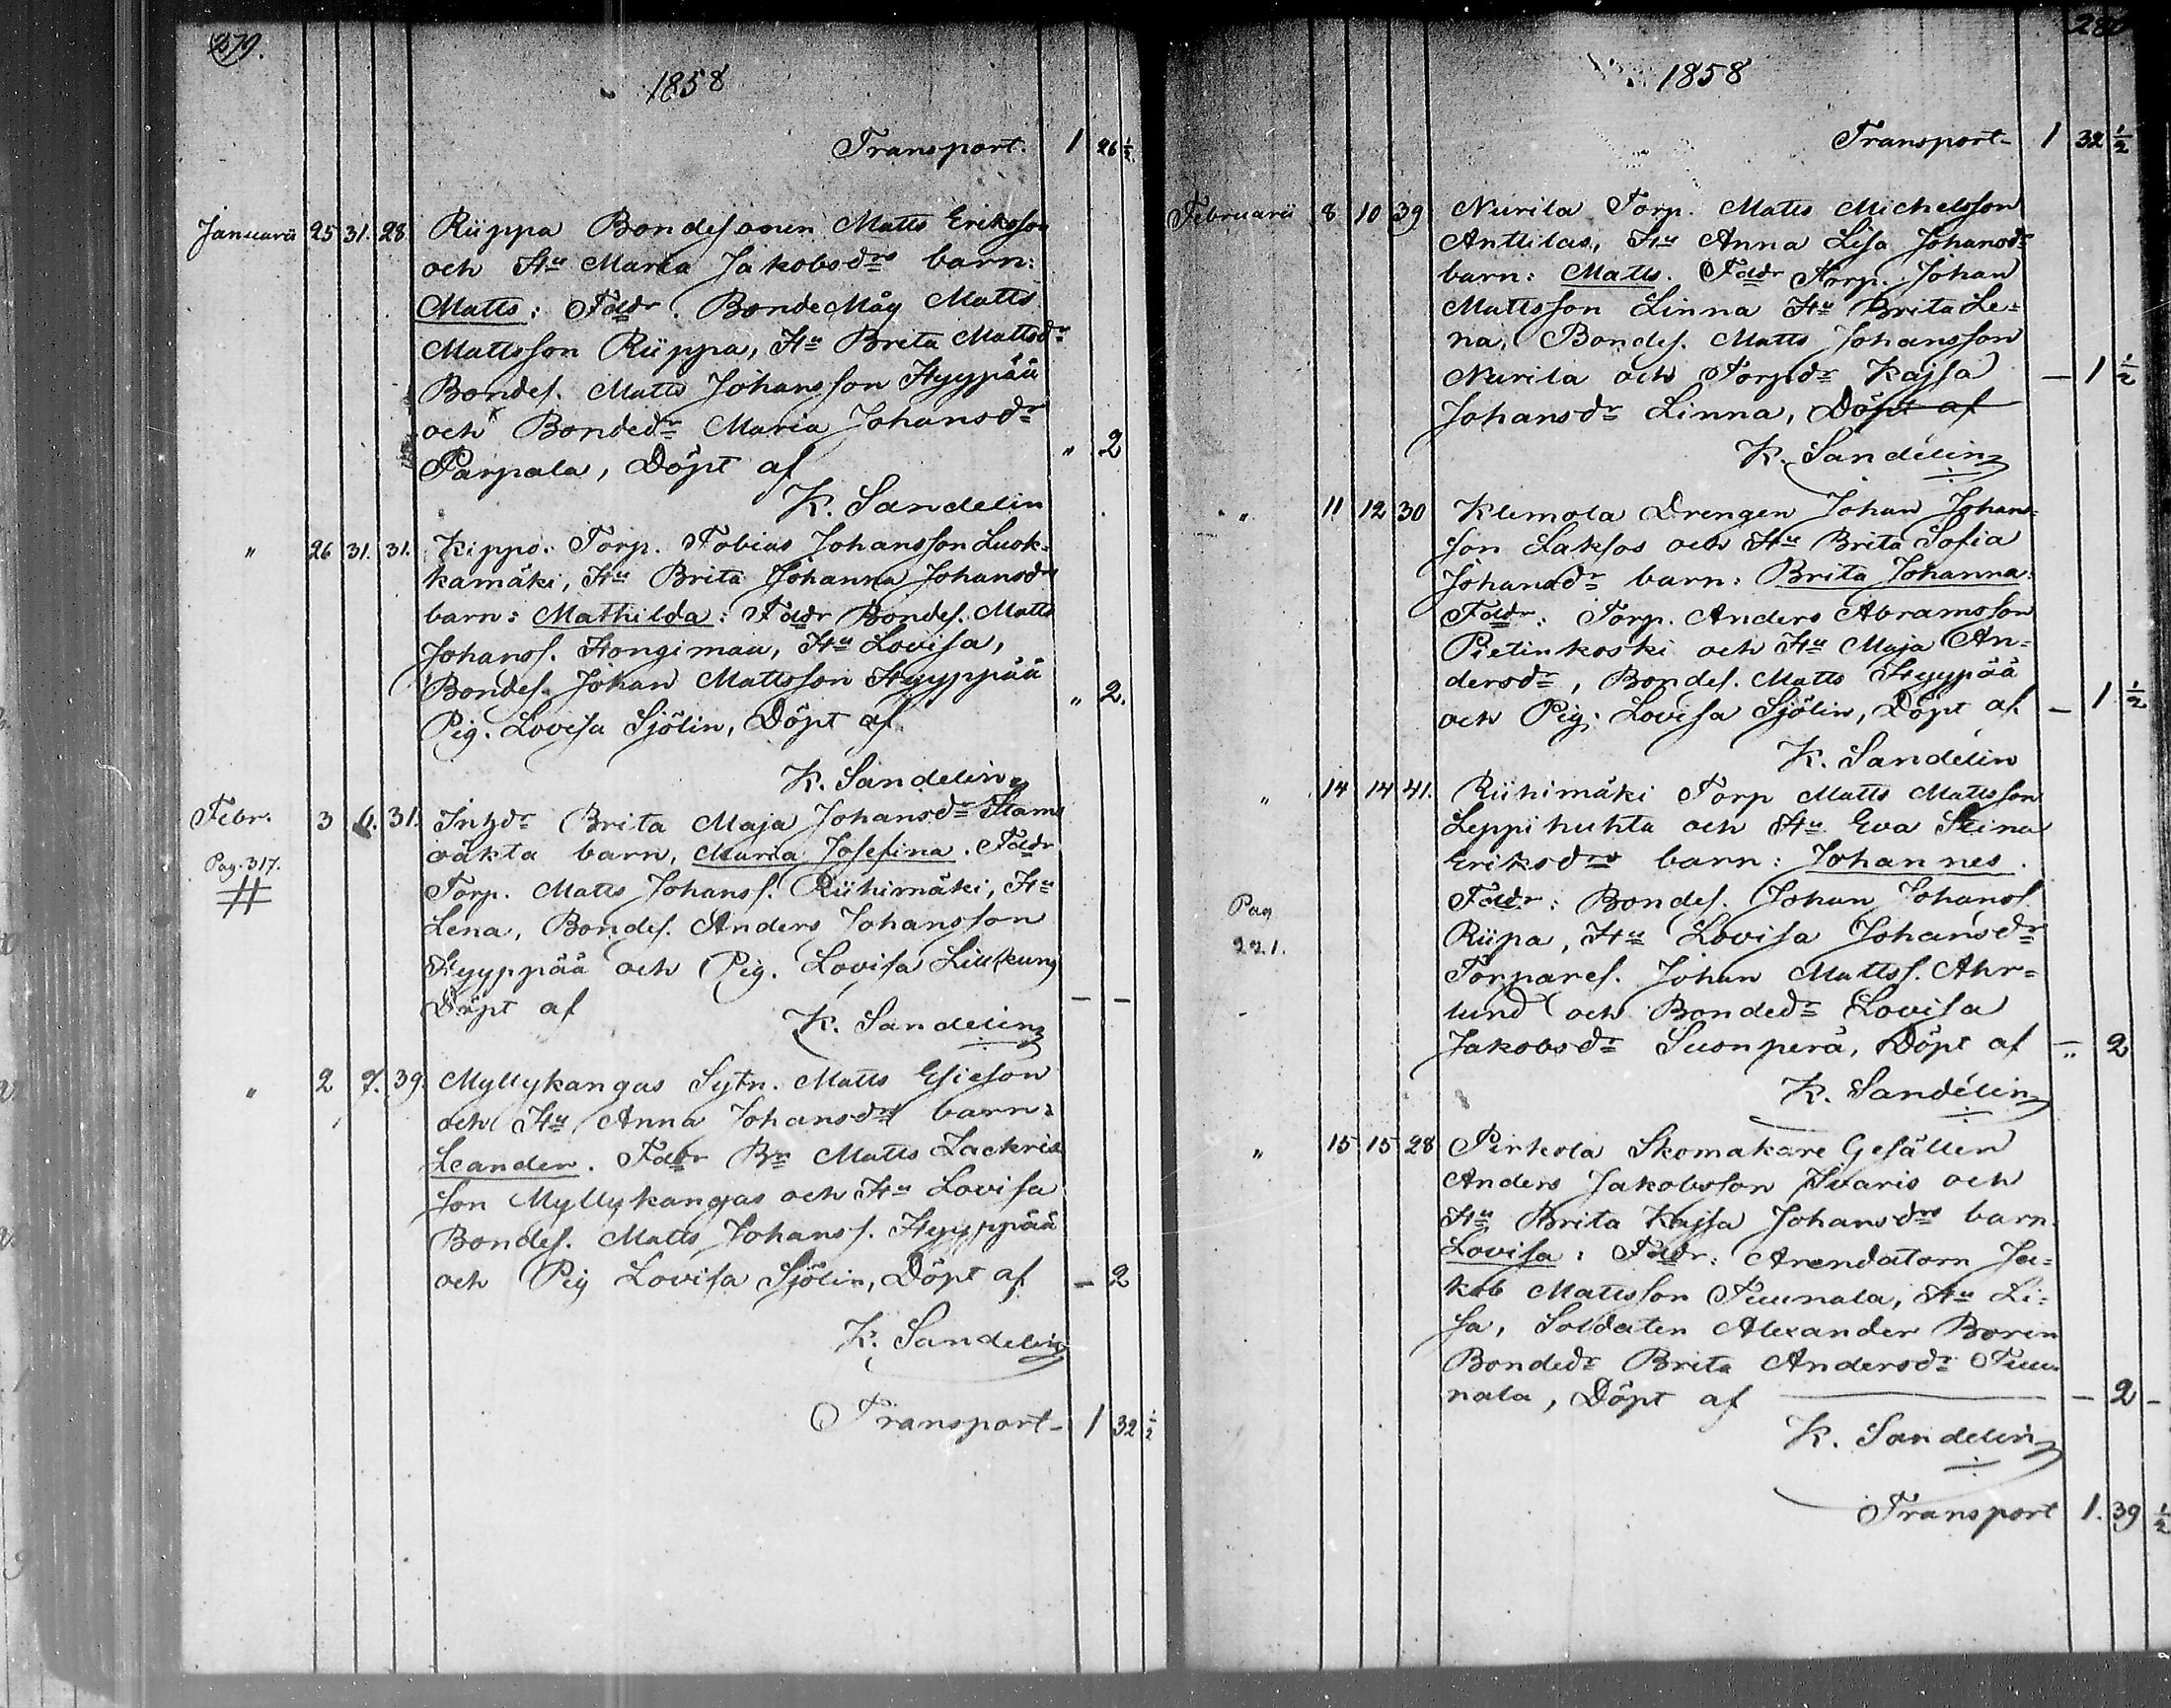 279.
1858
Transport. 1 26 1/2
Januarii 25 31. 28 Riippa Bondesonen Matts Eriksson
och Hu Maria Jakobsdrs barn:
Matts: Faddr. BondeMåg Matts
Mattsson Riippa, Hu Brita Mattsdr
Bondes. Matts Johansson Hyypää
och Bondedr Maria Johansdr
Parpala, Döpt af " 2
K. Sandelin
" 26 31. 31. Kippo. Torp. Tobias Johansson Luok-
kamäki, Hu Brita Johanna Johansdrs
barn: Mathilda: Faddr Bondes. Matts
Johanss. Hongimaa, Hu Lovisa,
Bondes. Johan Mattsson Hyyppää
Pig. Lovisa Sjölin, Döpt af " 2.
K. Sandelin
Febr. 3 6. 31. Inhdr Brita Maja Johansdr
oäkta barn, Maria Josefina. Faddr
Pag. 317.
Torp. Matts Johanss. Riihimäki, Hu
Lena, Bondes. Anders Johansson
Hyyppää och Pig. Lovisa
Döpt af — —
K. Sandelin
" 2 7. 39. Myllykangas Sytn. Matts Esicson
och Hu Anna Johansdrs barn:
Leander. Faddr Bn Matts Zackris
son Myllykangas och Hu Lovisa
Bondes. Matts Johans. Hyyppää
och Pig Lovisa Sjölin, Döpt af — 2
K. Sandelin
Transport — 1 32 1/2
280
1858
Transport — 1 32 1/2
Februarii 8 10 39 Nurila Torp. Matts Michelsson
Anttilas, Hu Anna Lisa Johansdrs
barn: Matts. Faddr Torp. Johan
Mattsson Linna Hu Brita Le=
na, Bondes. Matts Johansson
Nurila och Torpdr Kajsa — 1 1/2
Johansdr Linna, Döpt af
K. Sandelin
" 11 12 30 Klemola Drengen Johan Johans-
son Laksos och Hu Brita Sofia
Johansdr barn: Brita Johanna:
Faddr: Torp. Anders Abramsson
Pietinkoski och Hu Maja An=
dersdr, Bondes. Matts Hyypää
och Pig. Lovisa Sjölin, Döpt af — 1 1/2
K. Sandelin
" 14 14 41. Riihimäki Torp Matts Mattsson
Leppihuhta och Hu Eva Stina
Eriksdrs barn: Johannes.
Pag Faddr: Bondes. Johan Johanss.
221. Riipa, Hu Lovisa Johansdr
Torpares. Johan Mattss. Ahr=
lund och Bondedr Lovisa
Jakobsdr Suonperä, Döpt af — 2
K. Sandelin
" 15 15 28 Pirkola Skomakare Gesällen
Anders Jakobsson Ivaris och
Hu Brita Kajsa Johansdrs barn.
Lovisa: Faddr: Arendatorn Ja=
kob Mattsson Tuunala, Hu Li=
sa, Soldaten Alexander Boren
Bondedr Brita Andersdr Tuu
nala, Döpt af — 2 —
K. Sandelin
Transport 1. 39 1/2